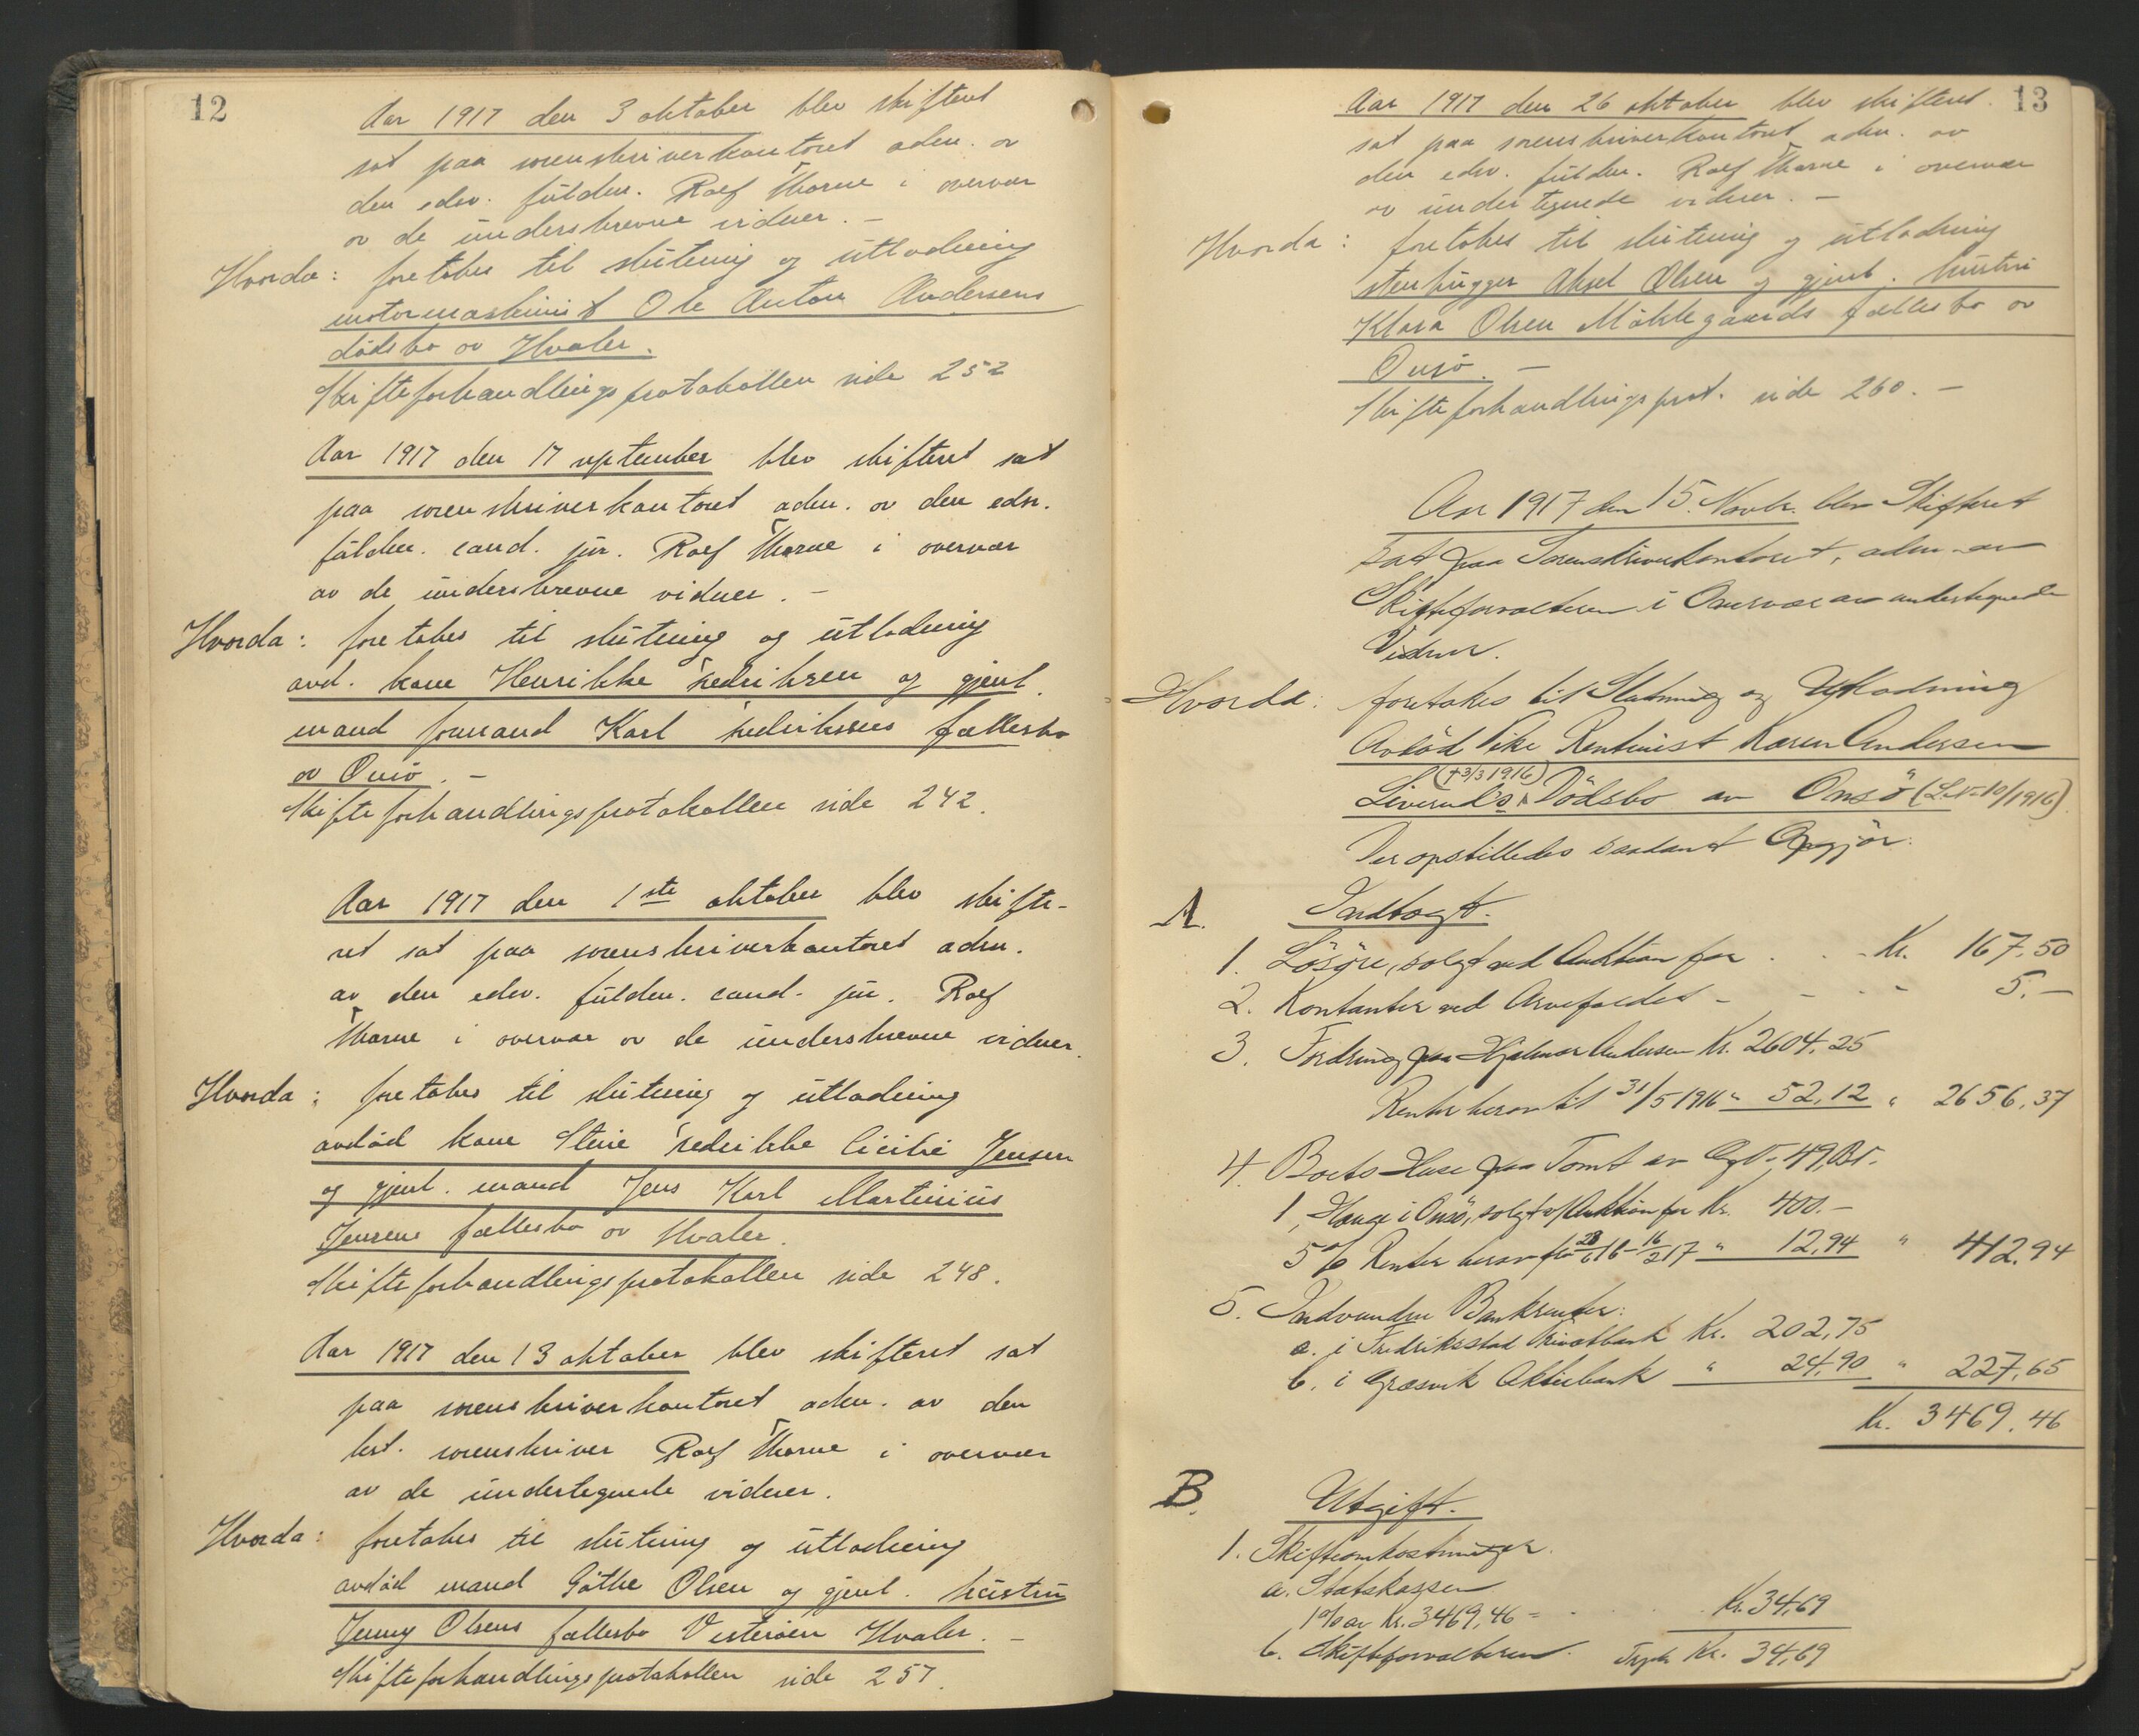 12
Aar 1917 den 3 oktober blev skifteret
sat paa sorenskriverkontoret adm. av
den edsv. fuldm. Rolf Thorne i overvær
av de underskrevne vidner. –
Hvorda: foretokes til slutning og utlodning
motormaskinist Ole Anton Andersens
dødsbo av Hvaler.
Skifteforhandlingsprotokollen side 252
Aar 1917 den 17 september blev skifteret sat
paa sorenskriverkontoret adm. av den edsv.
fuldm. cand. jur. Rolf Thorne i overvær
av de underskrevne vidner. –
Hvorda: foretokes til slutning og utlodning
avd. kone Henrikke Fredriksen og gjenl.
mand formand Karl Fredriksens fællesbo
av Onsö. –
Skifteforhandlingsprotokollen side 242.
Aar 1917 den 1ste oktober blev skifte-
ret sat paa sorenskriverkontoret adm.
av den edsv. fuldm. cand. jur. Rolf
Thorne i overvær av de underskrevne vidner.
Hvorda: foretokes til slutning og utlodning
avdöd kone Stine Fredrikke Cicilie Jensen
og gjenl. mand Jens Karl Martinius
Jensens fællesbo av Hvaler.
Skifteforhandlingsprotokollen side 248.
Aar 1917 den 13 oktober blev skifteret sat
paa sorenskriverkontoret adm. av den
kst. sorenskriver Rolf Thorne i overvær
av de undertegnede vidner.
Hvorda: foretokes til slutning og utlodning
avdöd mand Göthe Olsen og gjenl. hustru
Jenny Olsens fællesbo Vesteröen Hvaler. –
Skifteforhandlingsprotokollen side 257.
13
Aar 1917 den 26 oktober blev skifteret
sat paa sorenskriverkontoret adm. av
den edsv. fuldm. Rolf Thorne i overvær
av undertegnede vidner. –
Hvorda: foretokes til slutning og utlodning
stenhugger Aksel Olsen og gjenl. hustru
Klara Olsen Möklegaards fællesbo av
Onsö. –
Skifteforhandlingsprot. side 260. –
Aar 1917 den 15. Novbr. blev Skifteret
sat paa Sorenskriverkontoret, adm. av
Skifteforvalteren i Overvær av undertegnede
Vidner.
Hvorda: foretokes til Slutning og Utlodning
Avdöd Pike Rentenist Karen Andersen
(†3/3 1916)
Liverud's Dödsbo av Onsö (L.Nr. 10/1916)
Der opstilledes saadant Opgjör:
A. Indtægt.
1. Lösöre, solgt ved Auktion for . . - Kr. 167,50
2. Kontanter ved Arvefaldet - - - - 5. –
3. Fordring paa Hjalmar Andersen Kr. 2604,25
Renter herav til 31/5 1916 " 52,12 " 2656,37
4. Boets Huse paa Tomt av G.Nr. 49, Br.
1, Hauge i Onsö, solgt v/ Auktion for Kr. 400. –
5 % Renter herav fra 28/6 16 – 16/2 17 " 12,94 " 412,94
5. Indvundne Bankrenter:
a. i Fredriksstad Privatbank Kr. 202,75
b. i Græsvik Aktiebank " 24,90 " 227,65
Kr. 3469,46
B. Utgift.
1. Skifteomkostninger.
a. Statskassen
1% av Kr. 3469,46 = . . . Kr. 34,69
b. Skifteforvalteren. Trsp. Kr. 34,69